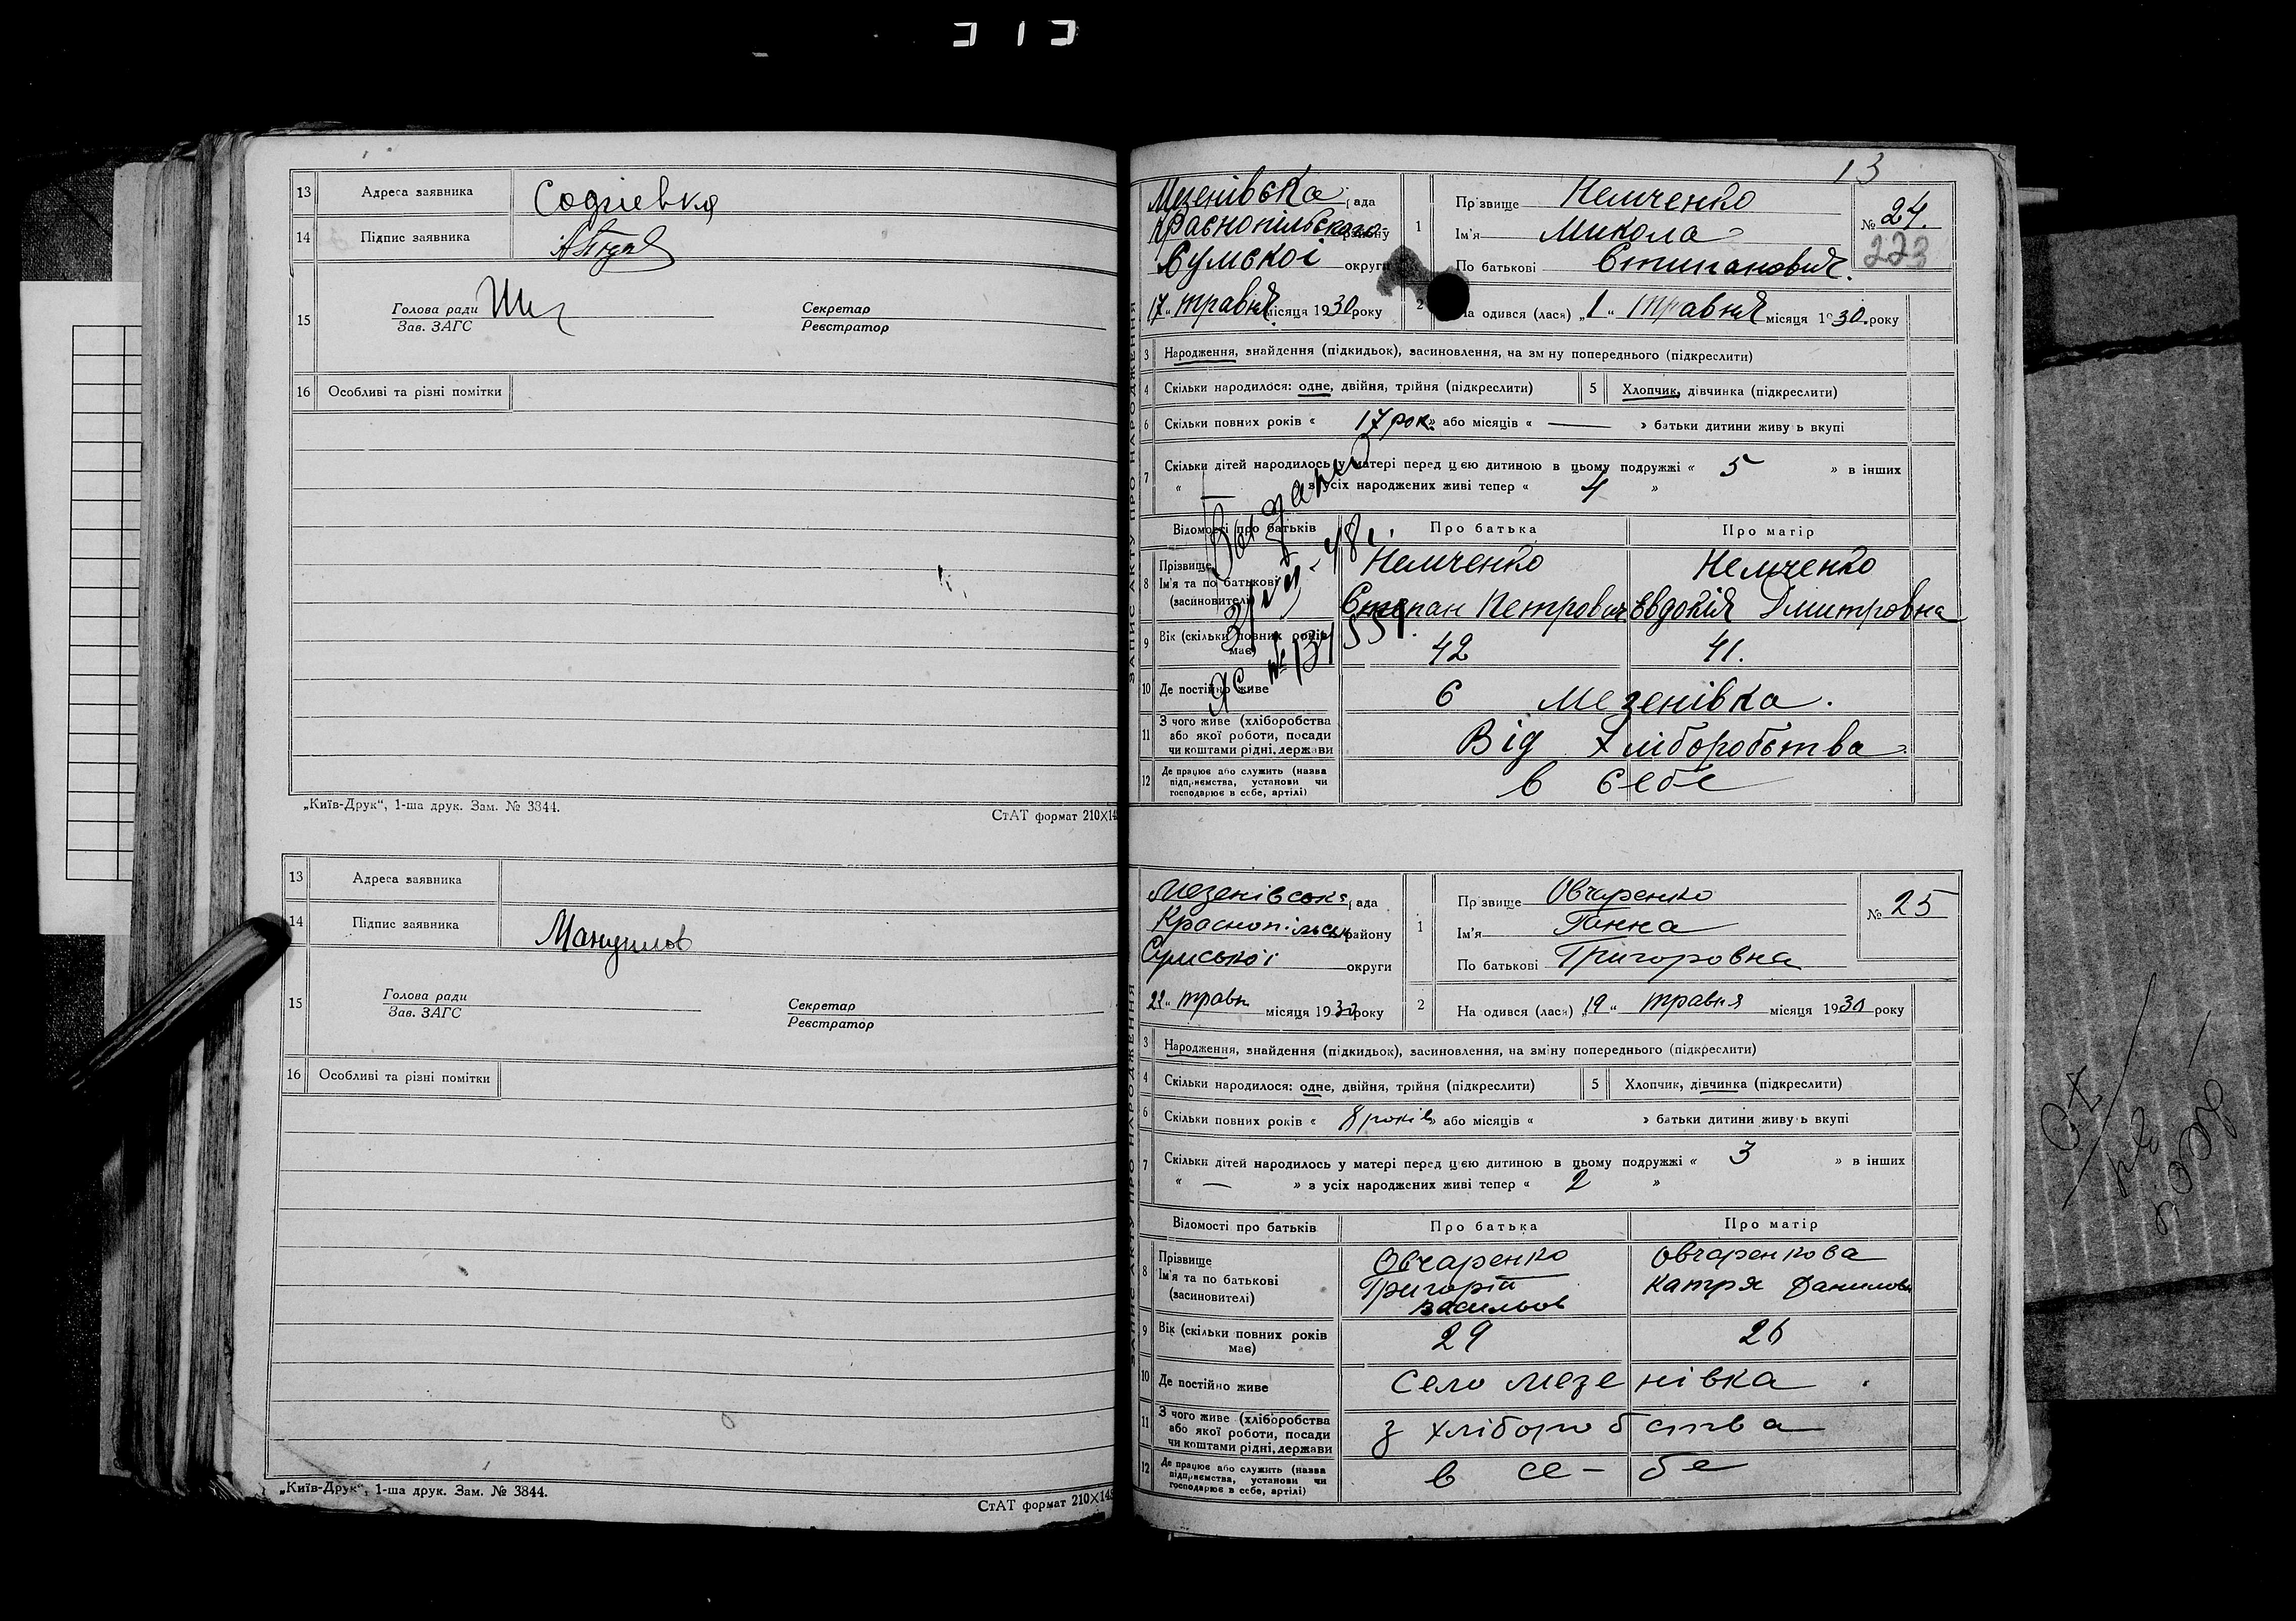 13 Адреса заявника Софіевка
14 Підпис заявника
15 Голова ради Секретар
Зав. ЗАГС Реєстратор
16 Особливі та різні помітки
„Київ-Друк“, 1-ша друк. Зам. № 3844.
СтАТ формат 210X148
13 Адреса заявника
14 Підпис заявника Мануилов
15 Голова ради Секретар
Зав. ЗАГС Реєстратор
16 Особливі та різні помітки
„Київ-Друк“, 1-ша друк. Зам. № 3844.
СтАТ формат 210X148
13
ЗАПИС АКТУ ПРО НАРОДЖЕННЯ
Мезенівська рада
Краснопільского району
Сумскої округи
17 „ травня місяця 1930 року
1 Прізвище Немченко
Ім'я Микола
По батькові Стипанович.
№ 24.
223
2 На одився (лася) „1 “ травня місяця 1930. року
3 Народження, знайдення (підкидьок), засиновлення, на зміну попереднього (підкреслити)
4 Скільки народилося: одне, двійня, трійня (підкреслити) 5 Хлопчик, дівчинка (підкреслити)
6 Скільки повних років « 17 рок. » або місяців « — » батьки дитини живуть вкупі
7 Скільки дітей народилось у матері перед цією дитиною в цьому подружжі « 5 » в інших
« — » з усіх народжених живі тепер « 4 »
Відомості про батьків Про батька Про матір
8 Прізвище Немченко Немченко
Ім'я та по батькові
(засиновителі) Степан Петрович Евдокія Дмитровна
9 Вік (скільки повних років має) 42 41.
10 Де постійно живе с Мезенівка.
11 З чого живе (хліборобства
або якої роботи, посади
чи коштами рідні, держави Від Хліборобства
12 Де працює або служить (назва
підприємства, установи чи
господарює в себе, артілі) в себе
Выдано
31/VII-48г.
ЗАПИС АКТУ ПРО НАРОДЖЕННЯ
Мезенівська рада
Краснопільськ району
Сумської округи
22 „ травн місяця 1930 року
1 Прізвище Овчаренко
Ім'я Ганна
По батькові Григоровна
№ 25
2 На одився (лася) „19 “ травня місяця 1930 року
3 Народження, знайдення (підкидьок), засиновлення, на зміну попереднього (підкреслити)
4 Скільки народилося: одне, двійня, трійня (підкреслити) 5 Хлопчик, дівчинка (підкреслити)
6 Скільки повних років « 8 років » або місяців « » батьки дитини живуть вкупі
7 Скільки дітей народилось у матері перед цією дитиною в цьому подружжі « 3 » в інших
« — » з усіх народжених живі тепер « 2 »
Відомості про батьків Про батька Про матір
8 Прізвище Овчаренко Овчаренкова
Ім'я та по батькові Григорій Катря Данилов
(засиновителі) васильов
9 Вік (скільки повних років має) 29 26
10 Де постійно живе Село Мезенівка
11 З чого живе (хліборобства
або якої роботи, посади
чи коштами рідні, держави з хліборобства
12 Де працює або служить (назва
підприємства, установи чи
господарює в себе, артілі) в се-бе